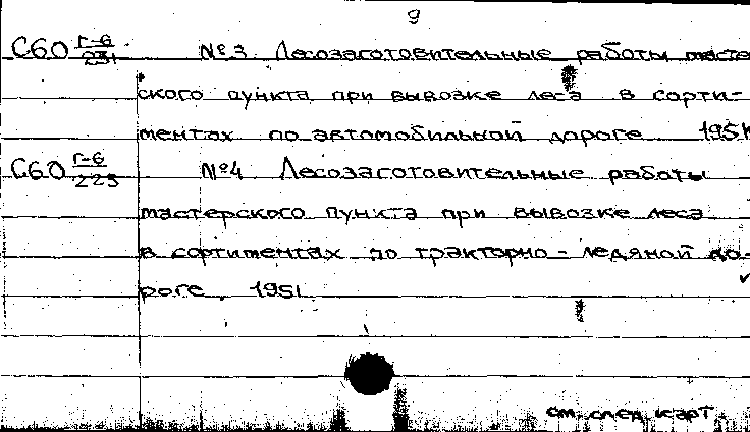 9
С60 Г-6/231 № 3 Лесозаготовительные работы масте
ского пункта при вывозке леса в сорти-
ментах по автомобильной дороге 1951
С60 Г-6/225 № 4 Лесозаготовительные работы
мастерского пункта при вывозке леса
в сортиментах по тракторно-ледяной до-
роге 1951
см. след. карт.